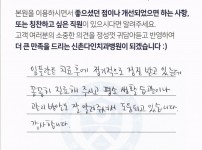 본원을 이용하시면서 좋으셨던 점이나 개선되었으면 하는 사항,
또는 칭찬하고 싶은 직원이 있으시다면 알려주세요.
고객 여러분의 소중한 의견을 정성껏 귀담아듣고 반영하여
더 큰 만족을 드리는 신촌다인치과병원이 되겠습니다 :)
임플란트 치료 후에 정기적으로 검진 받고 있는데
꼼꼼히 진료해 주시고 평소 생활 습관이나
관리 방법도 잘 알려주셔서 도움되고 있습니다
감사합니다